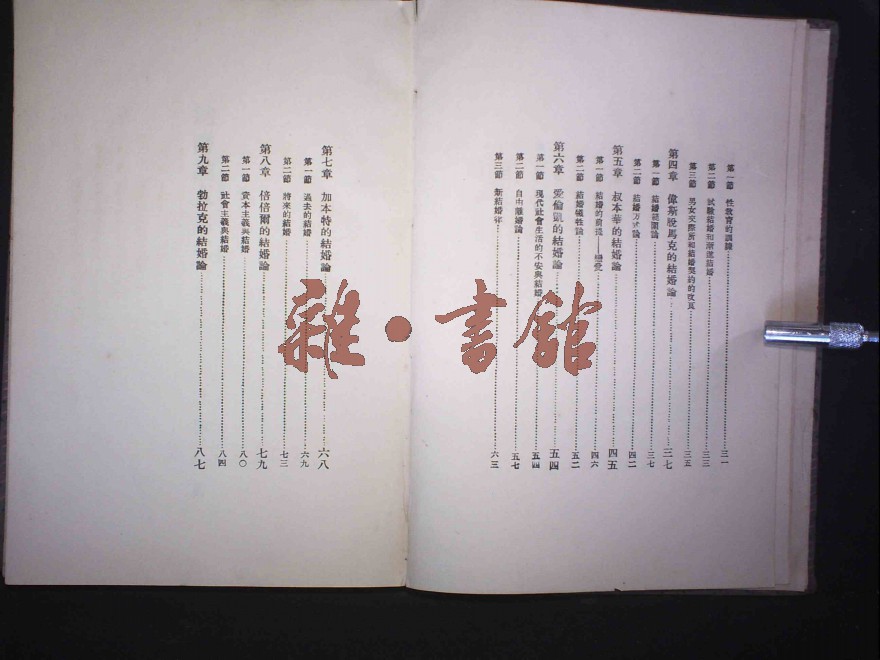 第一節 性教育的實踐……三一
第二節 試驗結婚和漸進結婚……三三
第三節 男女交際所和結婚契約的改頁……三五
第四章 偉斯脫馬克的結婚論……三七
第一節 結婚範圍論……三七
第二節 結婚方式論……四二
第五章 叔本華的結婚論……四五
第一節 結婚的前提——戀愛……四六
第二節 結婚犧牲論……五二
第六章 愛倫凱的結婚論……五四
第一節 現代社會生活的不安與結婚……五四
第二節 自由離婚論……五七
第三節 新結婚律……六三
第七章 加本特的結婚論……六八
第一節 過去的結婚……六九
第二節 將來的結婚……七三
第八章 倍倍爾的結婚論……七九
第一節 資本主義與結婚……八〇
第二節 社會主義與結婚……八四
第九章 勃拉克的結婚論……八七
雜·書館